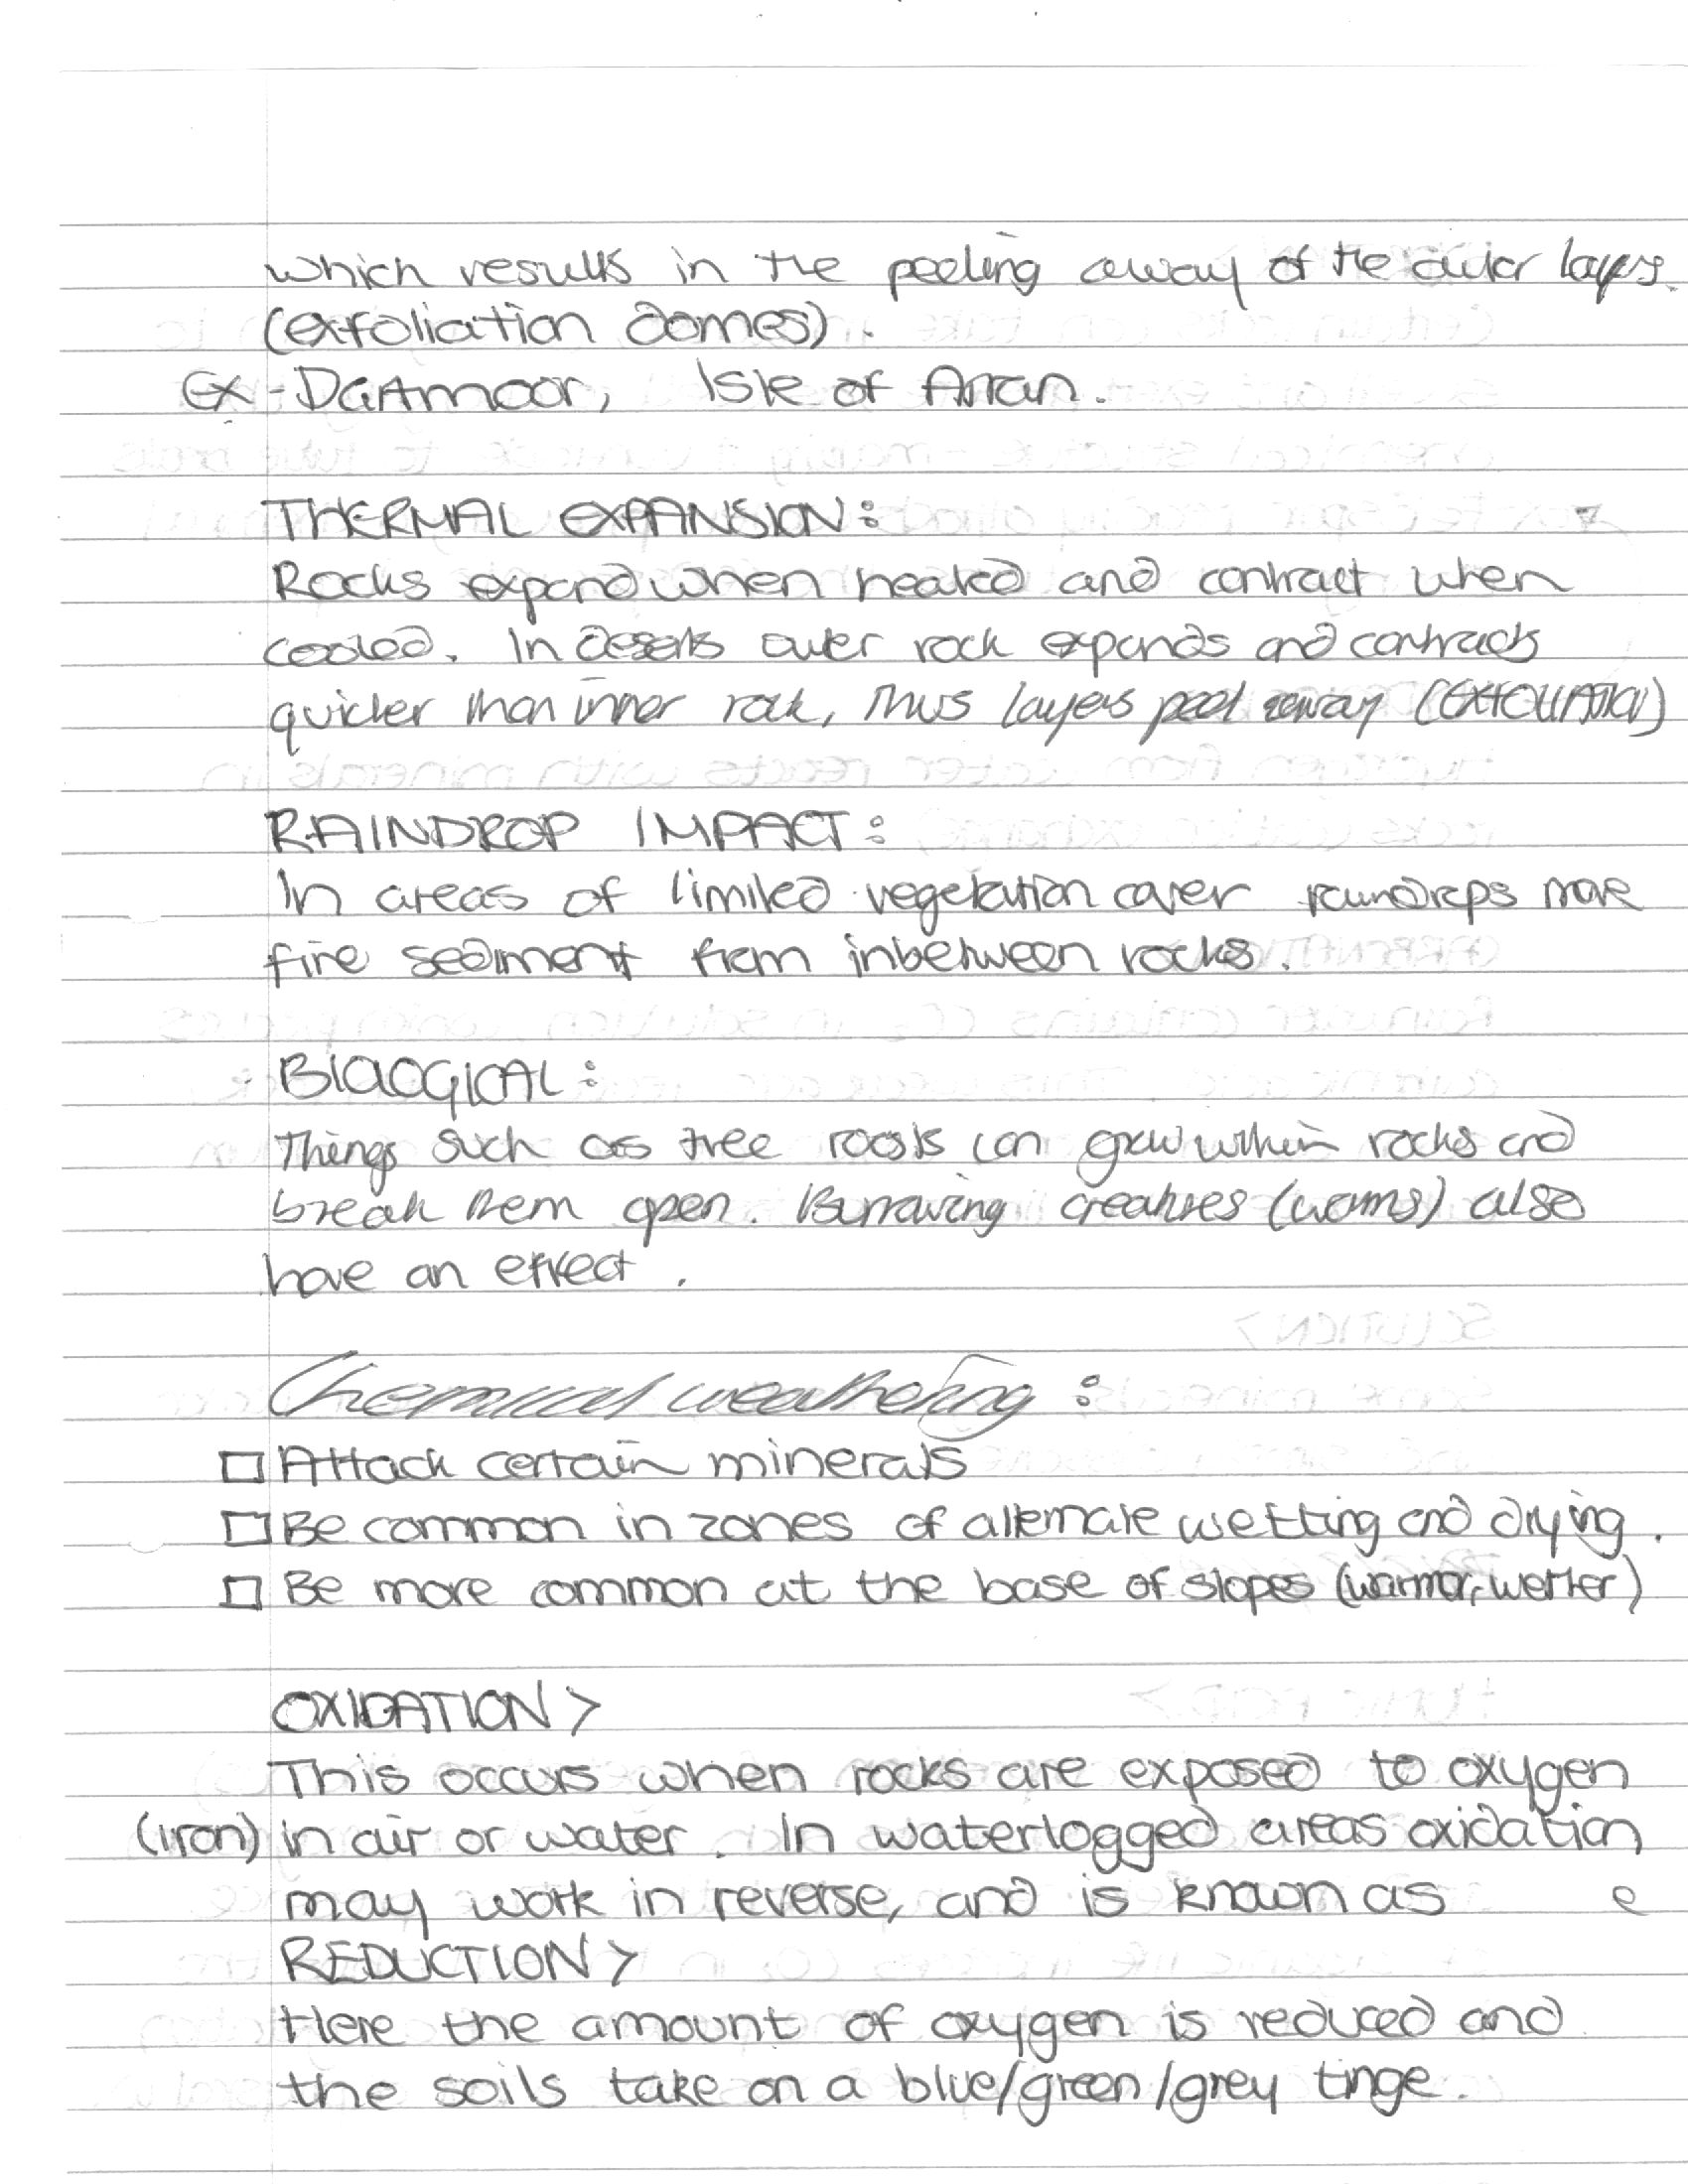 which results in the peeling away of the outer layers.
(exfoliation domes).
Ex - Dartmoor, Isle of Arran.
THERMAL EXPANSION:
Rocks expand when heated and contract when
cooled. In deserts outer rock expands and contracts
quicker than inner rock, thus layers peel away (EXFOLIATION)
RAINDROP IMPACT:
In areas of limited vegetation cover raindrops move
fine sediment from inbetween rocks.
BIOLOGICAL:
Things such as tree roots can grow within rocks and
break them open. Burrowing creatures (worms) also
have an effect.
Chemical weathering:
□ Attack certain minerals
□ Be common in zones of alternate wetting and drying.
□ Be more common at the base of slopes (warmer, wetter)
OXIDATION >
This occurs when rocks are exposed to oxygen
(iron) in air or water. In waterlogged areas oxidation
may work in reverse, and is known as e
REDUCTION >
Here the amount of oxygen is reduced and
the soils take on a blue/green/grey tinge.